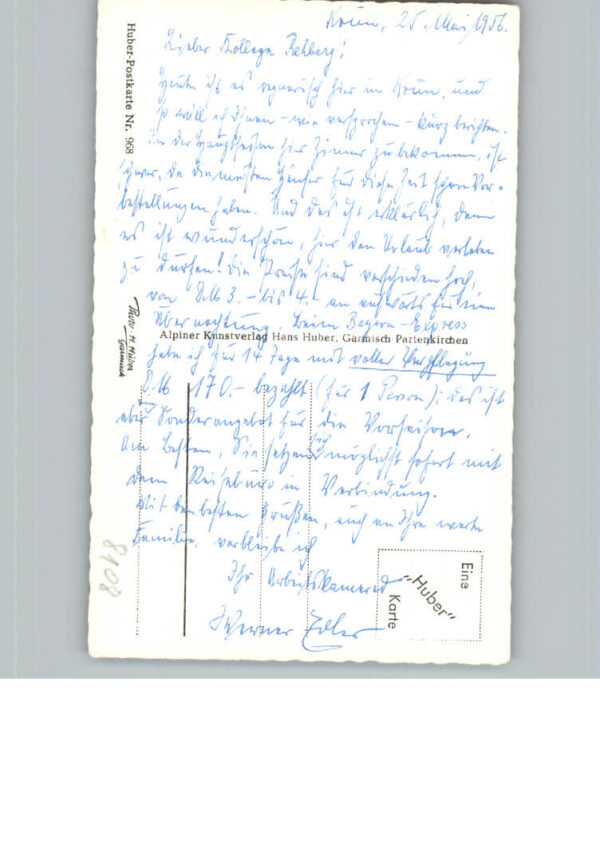 Krün, 25. Mai 1956.
Lieber Kollege Rehberg!
Heute ist es regnerisch hier in Krün, und
so will ich Ihnen – wie versprochen – kurz berichten.
In der Hauptsaison hier Zimmer zu bekommen, ist
schwer, da die meisten Häuser für diese Zeit schon Vor-
bestellungen haben. Und das ist erklärlich, denn
es ist wunderschön, hier den Urlaub verleben
zu dürfen! Die Preise sind verschieden hoch,
von DM 3.- bis 4.- an aufwärts für eine
Übernachtung. Beim Bayern-Express
habe ich für 14 Tage mit voller Verpflegung
DM 170.- bezahlt (für 1 Person); das ist
aber Sonderangebot für die Vorsaison.
Am Besten, Sie setzen sich möglichst sofort mit
dem Reisebüro in Verbindung.
Mit den besten Grüßen, auch an Ihre werte
Familie verbleibe ich
Ihr Arbeitskamerad
Werner Edler
Huber-Postkarte Nr. 968
Photo H. Huber
Garmisch
Alpiner Kunstverlag Hans Huber, Garmisch Partenkirchen
Eine
„Huber"
Karte
8108